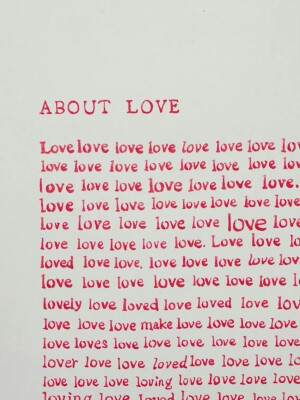 ABOUT LOVE
Love love love love love love love
love love love love love love love love
love love love love love love love.
love love love love love love love love
love love love love love love love
love love love love love. Love love
loved love love, love love love love love
love love love love love love love
lovely love loved love loved love
love love love make love love love love
love loves love love love love love love
lover love love loved love love love
love love love loving love love love love
loving love loved love love love